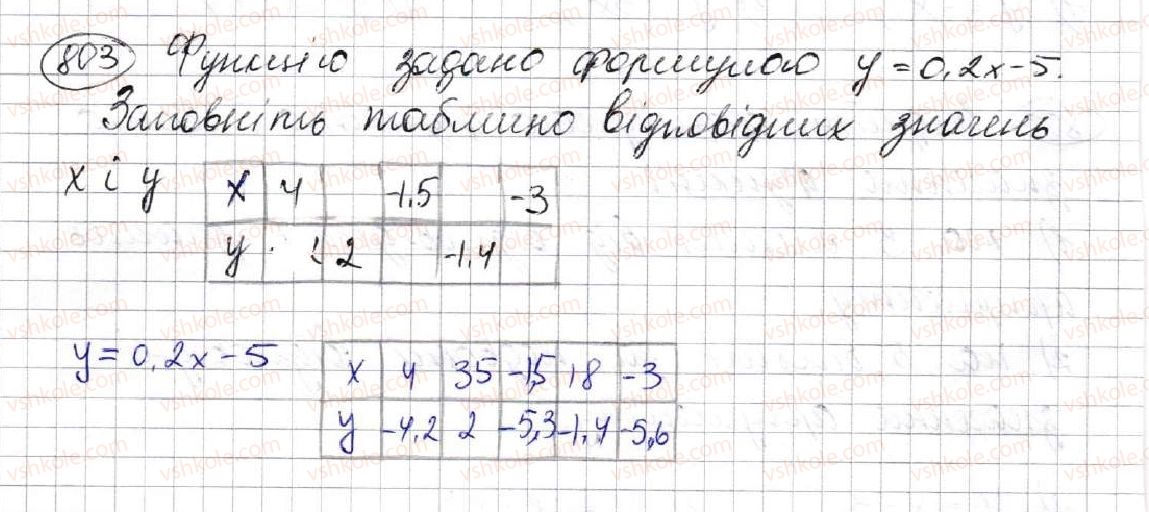 803 Функцію задано формулою y = 0,2x - 5.
Заповніть таблицю відповідних значень
x і y
x 4 -1,5 -3
y 2 -1,4
y = 0,2x - 5
x 4 35 -1,5 18 -3
y -4,2 2 -5,3 -1,4 -5,6
vshkole.com